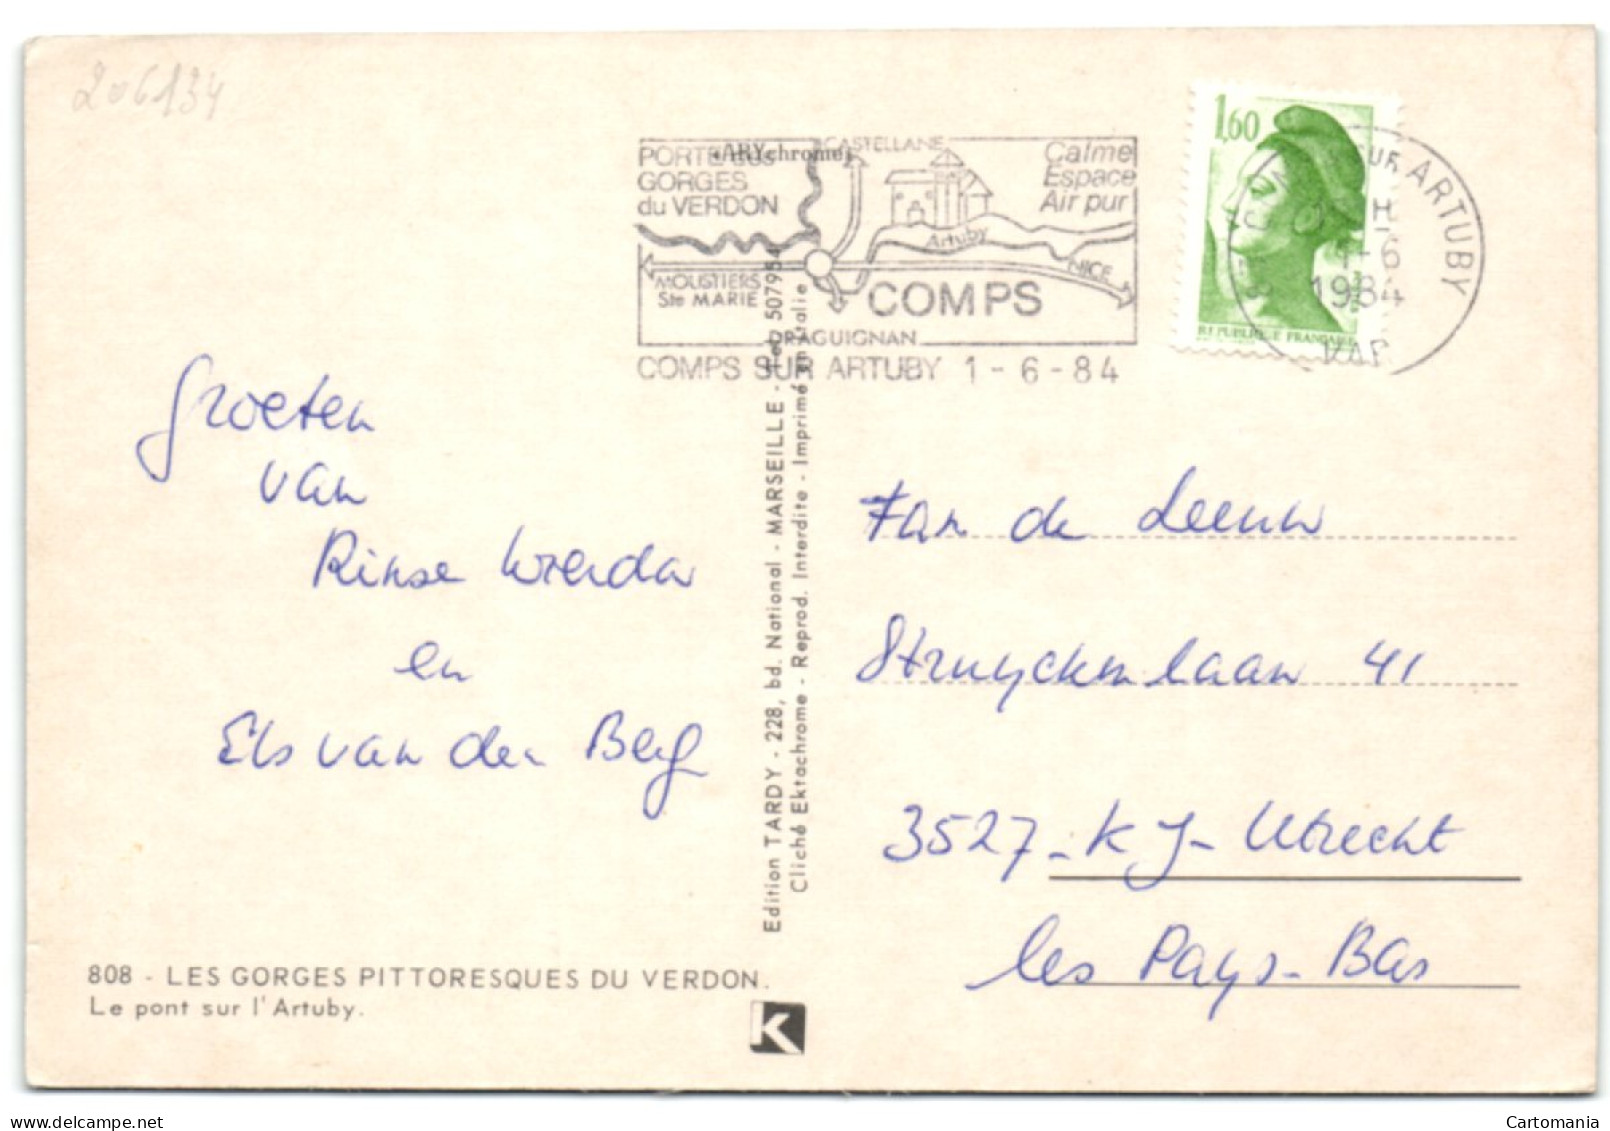 206134
PORTE DES
GORGES
du VERDON
CASTELLANE
Calme
Espace
Air pur
Artuby
NICE
MOUSTIERS
Ste MARIE
COMPS
DRAGUIGNAN
COMPS SUR ARTUBY 1 - 6 - 84
1,60
REPUBLIQUE FRANÇAISE
SUR ARTUBY
H
1-6
1984
VAR
Groeten
van
Rinse Wierda
en
Els van den Berg
Edition TARDY - 228, bd. National - MARSEILLE
Cliché Ektachrome - Reprod. Interdite - Imprimé en Italie
Fam de Leeuw
Struyckenlaan 41
3527 - KJ - Utrecht
les Pays-Bas
808 - LES GORGES PITTORESQUES DU VERDON.
Le pont sur l'Artuby.
K
Cartomania